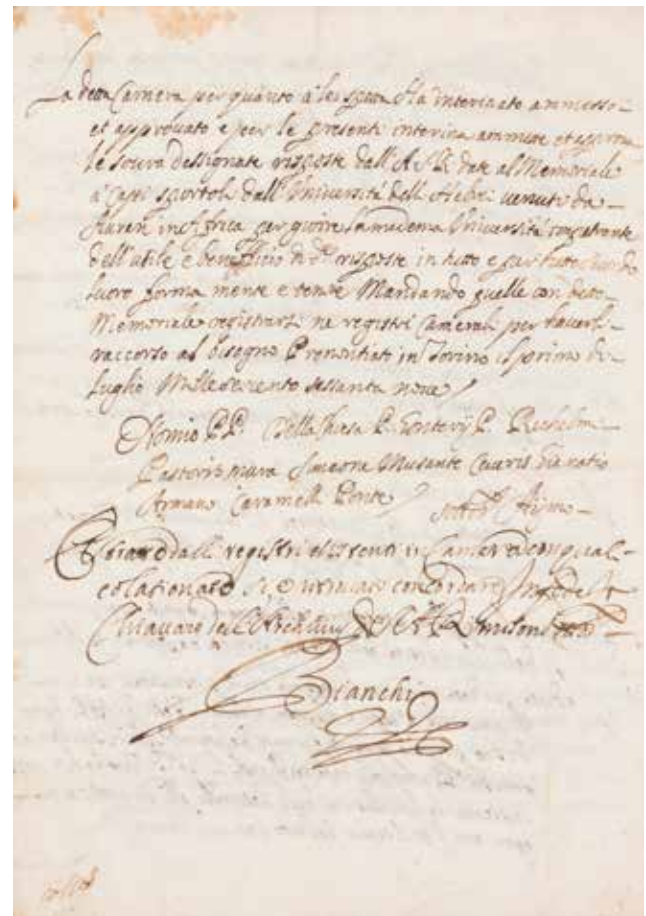 La detta Camera per quanto à lei spetta Ha interinato ammesso
et approvato e per le presenti interina ammette et approva
le sovra dessignate risposte dall'A S R date al Memoriale
à Capi sportoli dall'Università dell' Hebrei venuti da
in Affrica per gioire la medema Università
dell'utile e beneffício di dte risposte in tutto e per tutto
luoro forma mente e tenore Mandando quelle con detto
Memoriale registrarsi ne registri Camerali per haverli
raccorso al bisogno Prononciate in Torino il primo di
Luglio Mille seicento sessanta nove
Nomio P.P. Della Chiesa P. Gontery P.
Pastoris Simeone Musante
Armano Caramelli Ponte
Estratto dalli registri esistenti in Camera con quali
colationato si è trovato concordare
Chiavaro dell'
Bianchi